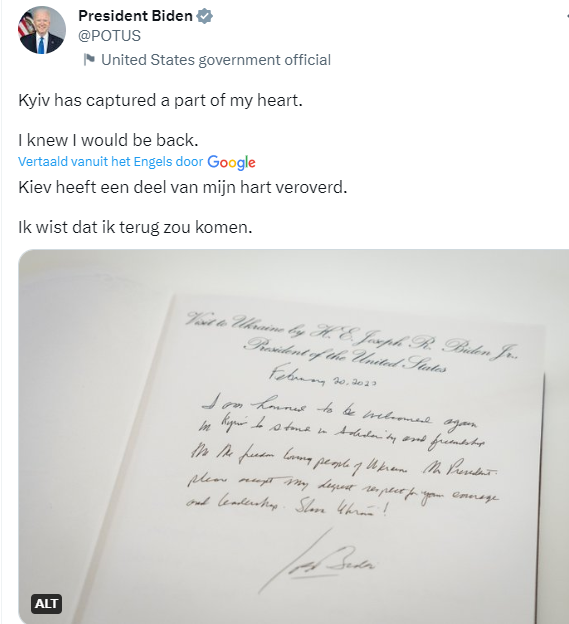 President Biden
@POTUS
United States government official
Kyiv has captured a part of my heart.
I knew I would be back.
Vertaald vanuit het Engels door Google
Kiev heeft een deel van mijn hart veroverd.
Ik wist dat ik terug zou komen.
Visit to Ukraine by H. E. Joseph R. Biden Jr.
President of the United States
February 20, 2023
I am honored to be welcomed again
in Kyiv to stand in solidarity and friendship
with the freedom loving people of Ukraine. Mr. President
please accept my deepest respect for your courage
and leadership. Slava Ukraini!
Joe Biden
ALT